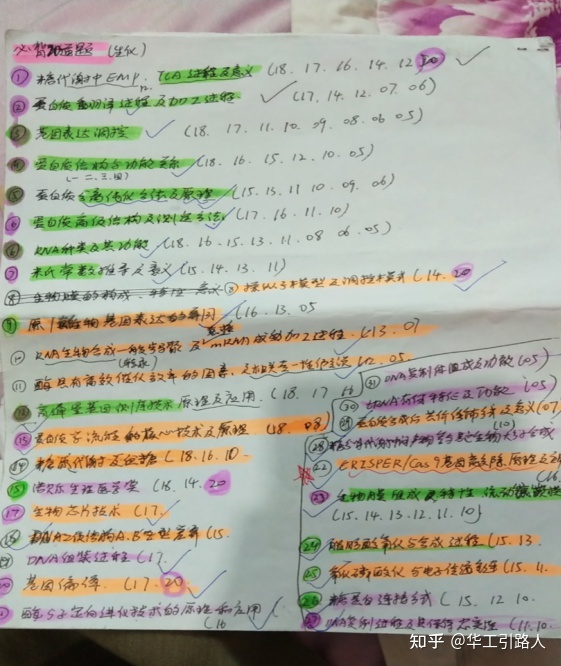 必背知道题（生化）
① 糖代谢中EMP、TCA过程及意义（18. 17. 16. 14. 12 20
② 蛋白质翻译过程及加工过程（17. 14. 12. 07. 06）
③ 基因表达调控（18. 17. 11. 10. 09. 08. 06 05）
④ 蛋白质结构与功能关系（18. 16. 15. 12. 10. 05）
（一、二、三、四）
⑤ 蛋白质分离纯化方法及原理（15. 13. 11 10. 09. 06）
蛋白质高级结构及测定方法（17. 16. 11. 10）
⑥ RNA种类及其功能（18. 16. 15. 13. 11. 08 06. 05）
⑦ 米氏常数推导及意义（15. 14. 13. 11）
⑧ 生物膜的构成、特性、意义 ⑧ 操纵子模型及调控模式（14. 20
⑨ 原/真核生物基因表达的异同（16. 13. 05
真核
⑩ RNA生物合成一般步骤及mRNA成的加工过程（13. 07
（转录）
⑪ 酶具有高效催化效率的因素，（12. 05
⑫ 高通量基因测序技术原理及应用（18. 17
⑬ 蛋白分子流程的核心技术及原理（18. 08）
⑭ 糖酵代谢及血糖（18. 16. 10.
⑮ 诺贝尔生理医学奖（18. 14. 20
⑰ 生物芯片技术（17.
⑱ DNA二级结构A.B.Z型差异（15.
DNA组装过程（17
基因偏倚（17. 20
酶分子定向进化技术的原理和应用
（16
㉛ DNA复制体组成及功能（05）
㉚ tRNA结构特征及功能（05）
蛋白质合成后共价修饰及意义（07
（10）
㉘ 糖分子代谢中
㉒ CRISPER/Cas9基因敲除原理及
（16
㉓ 生物膜组成及特性
（15. 14. 13. 12. 11. 10）
㉔ 脂肪酸氧化与合成过程（15. 13.
㉕ 氧化磷酸化与电子传递过程（15. 11.
㉖ 糖蛋白连接方式（15. 12 10.
㉗ DNA复制过程及其保持忠实性（11. 10.
知乎 @华工引路人